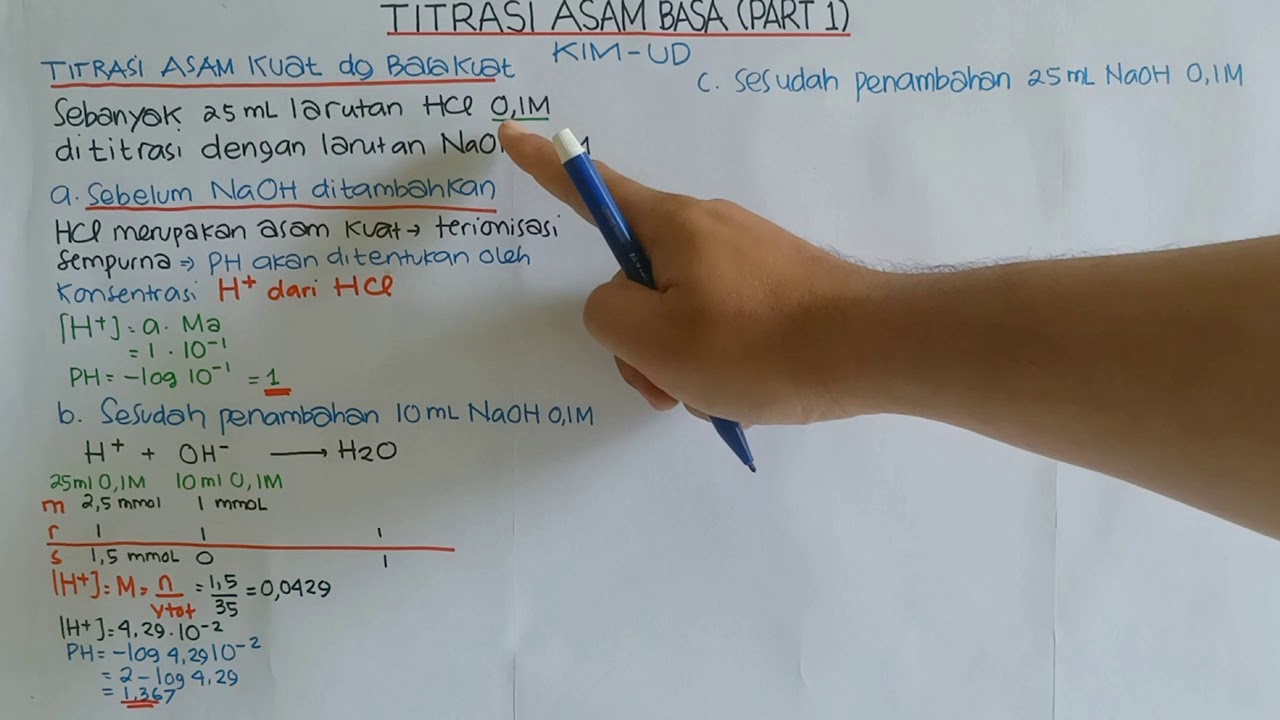 TITRASI ASAM BASA (PART 1)
KIM-UD
TITRASI ASAM Kuat dg Basa Kuat
Sebanyak 25 mL larutan HCl 0,1M
dititrasi dengan larutan
a. Sebelum NaOH ditambahkan
HCl merupakan asam kuat → terionisasi
sempurna ⇒ PH akan ditentukan oleh
Konsentrasi H⁺ dari HCl
[H⁺] = a . Ma
= 1 . 10⁻¹
PH = -log 10⁻¹ = 1
b. Sesudah penambahan 10 mL NaOH 0,1M
H⁺ + OH⁻ → H2O
25ml 0,1M 10ml 0,1M
m 2,5 mmol 1 mmoL
r 1 1 1
s 1,5 mmoL 0 1
[H⁺] = M = n/Vtot = 1,5/35 = 0,0429
[H⁺] = 4,29 . 10⁻²
PH = -log 4,29 10⁻²
= 2 - log 4,29
= 1,367
c. Sesudah penambahan 25 mL NaOH 0,1M